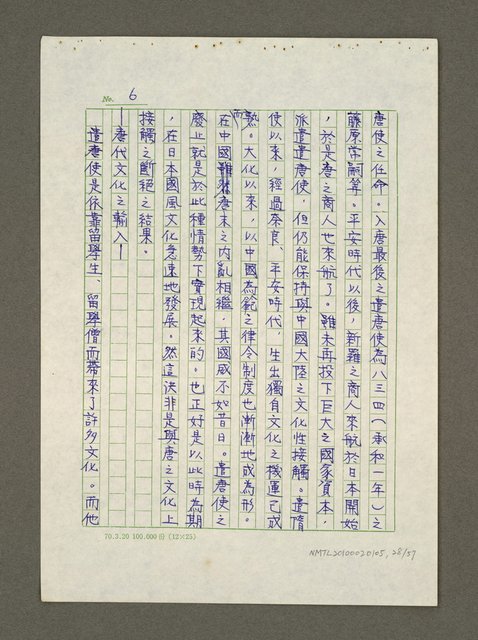 No. 6
唐使之任命。入唐最後之遣唐使為八三四（承和一年）之
藤原常嗣等。平安時代以後，新羅之商人來航於日本開始
，於是唐之商人也來航了。雖未再投下巨大之國家資本，
派遣遣唐使，但仍能保持與中國大陸之文化性接觸。遣隋
使以來，經過奈良、平安時代，生出獨自文化之機運已成
熟。大化以來，以中國為範之律令制度也漸漸地成為形。
而在中國雖然唐末之內亂相繼，其國威不如昔日。遣唐使之
廢止就是於此種情勢下實現起來的。也正好是以此時為期
，在日本國風文化急速地發展。然這決非是與唐之文化上
接觸之斷絕之結果。
—唐代文化之輸入—
遣唐使是依靠留學生、留學僧而帶來了許多文化。而他
70.3.20 100.000份 (12×25)
NMTL20100020105, 28/57